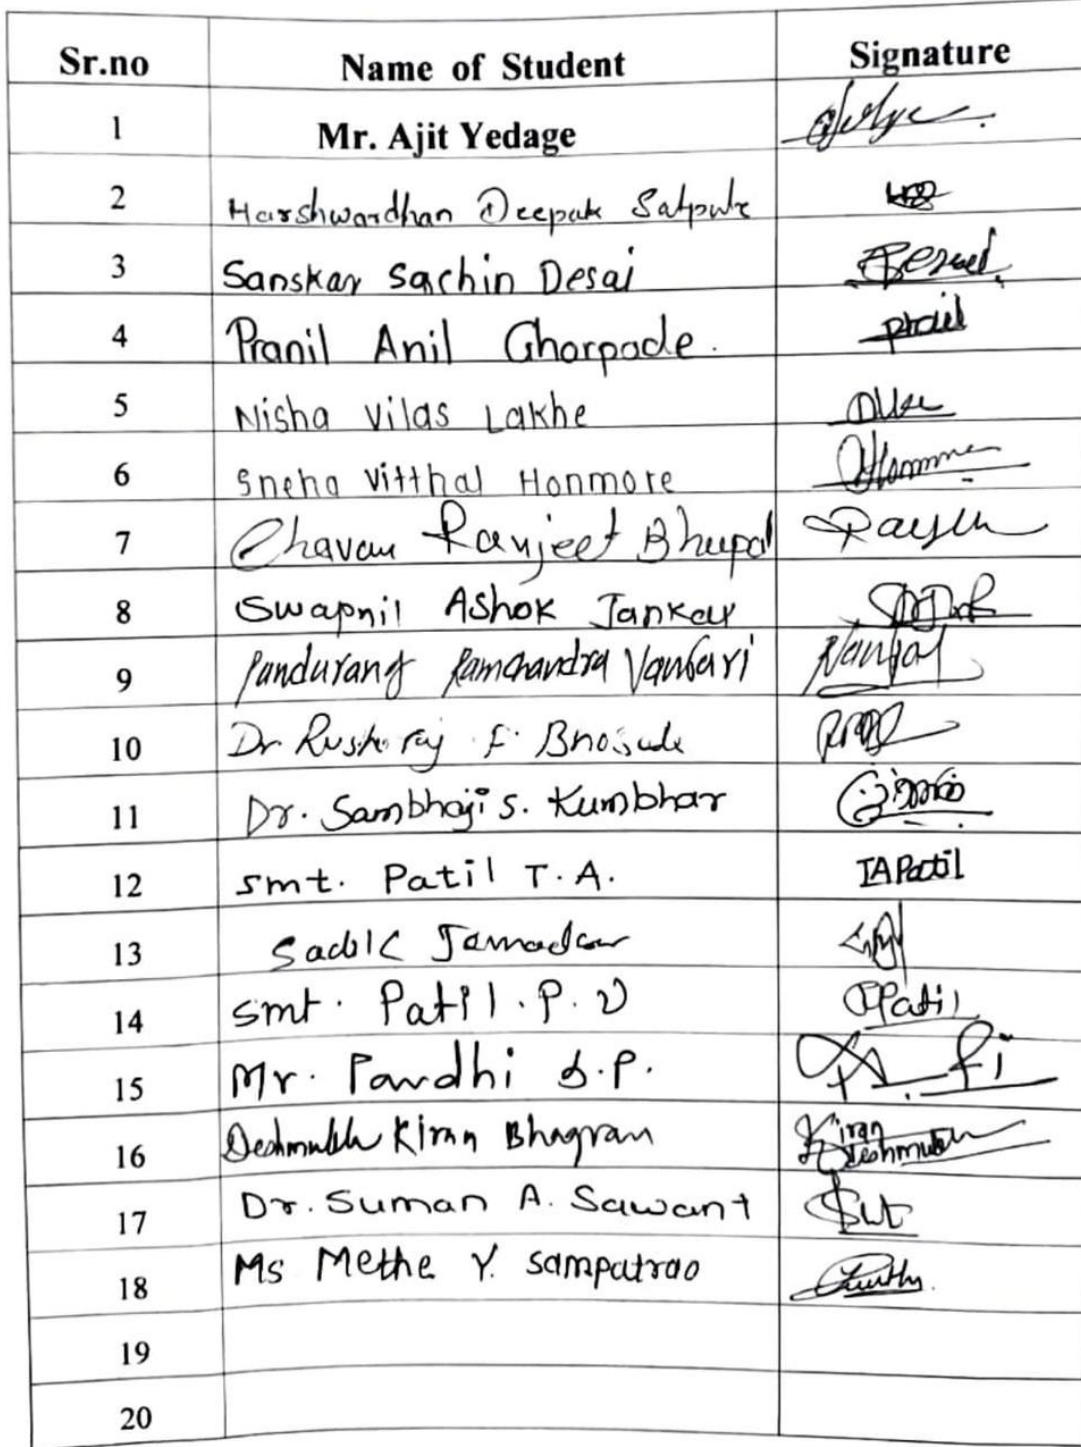 Sr.no Name of Student Signature
1 Mr. Ajit Yedage
2 Harshwardhan Deepak Satpute
3 Sanskar Sachin Desai
4 Pranil Anil Ghorpade.
5 Nisha Vilas Lakhe
6 Sneha Vitthal Honmore
7 Chavan Ranjeet Bhupal
8 Swapnil Ashok Jankar
9 Pandurang Ramchandra
10 Dr.
11 Dr. Sambhaji s. Kumbhar
12 smt. Patil T.A. TAPatil
13 Sadik Jamadar
14 smt. Patil.P.V Patil
15 Mr. Pardhi S.P.
16 Deshmukh Kiran Kiran Deshmukh
17 Dr. Suman A. Sawant
18 Ms Methe Y. Sampatrao
19
20